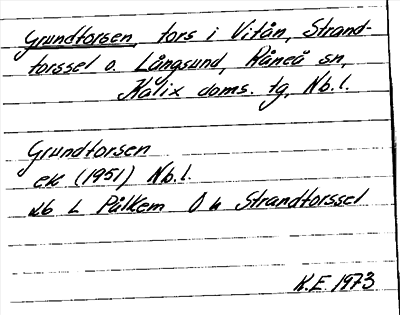 Grundforsen, fors i Vitån, Strand-
forssel o. Långsund, Råneå sn,
Kalix doms. tg, Nb.l.
Grundforsen
ek (1951) Nb.l.
ab L Pålkem O u Strandforssel
K.E. 1973